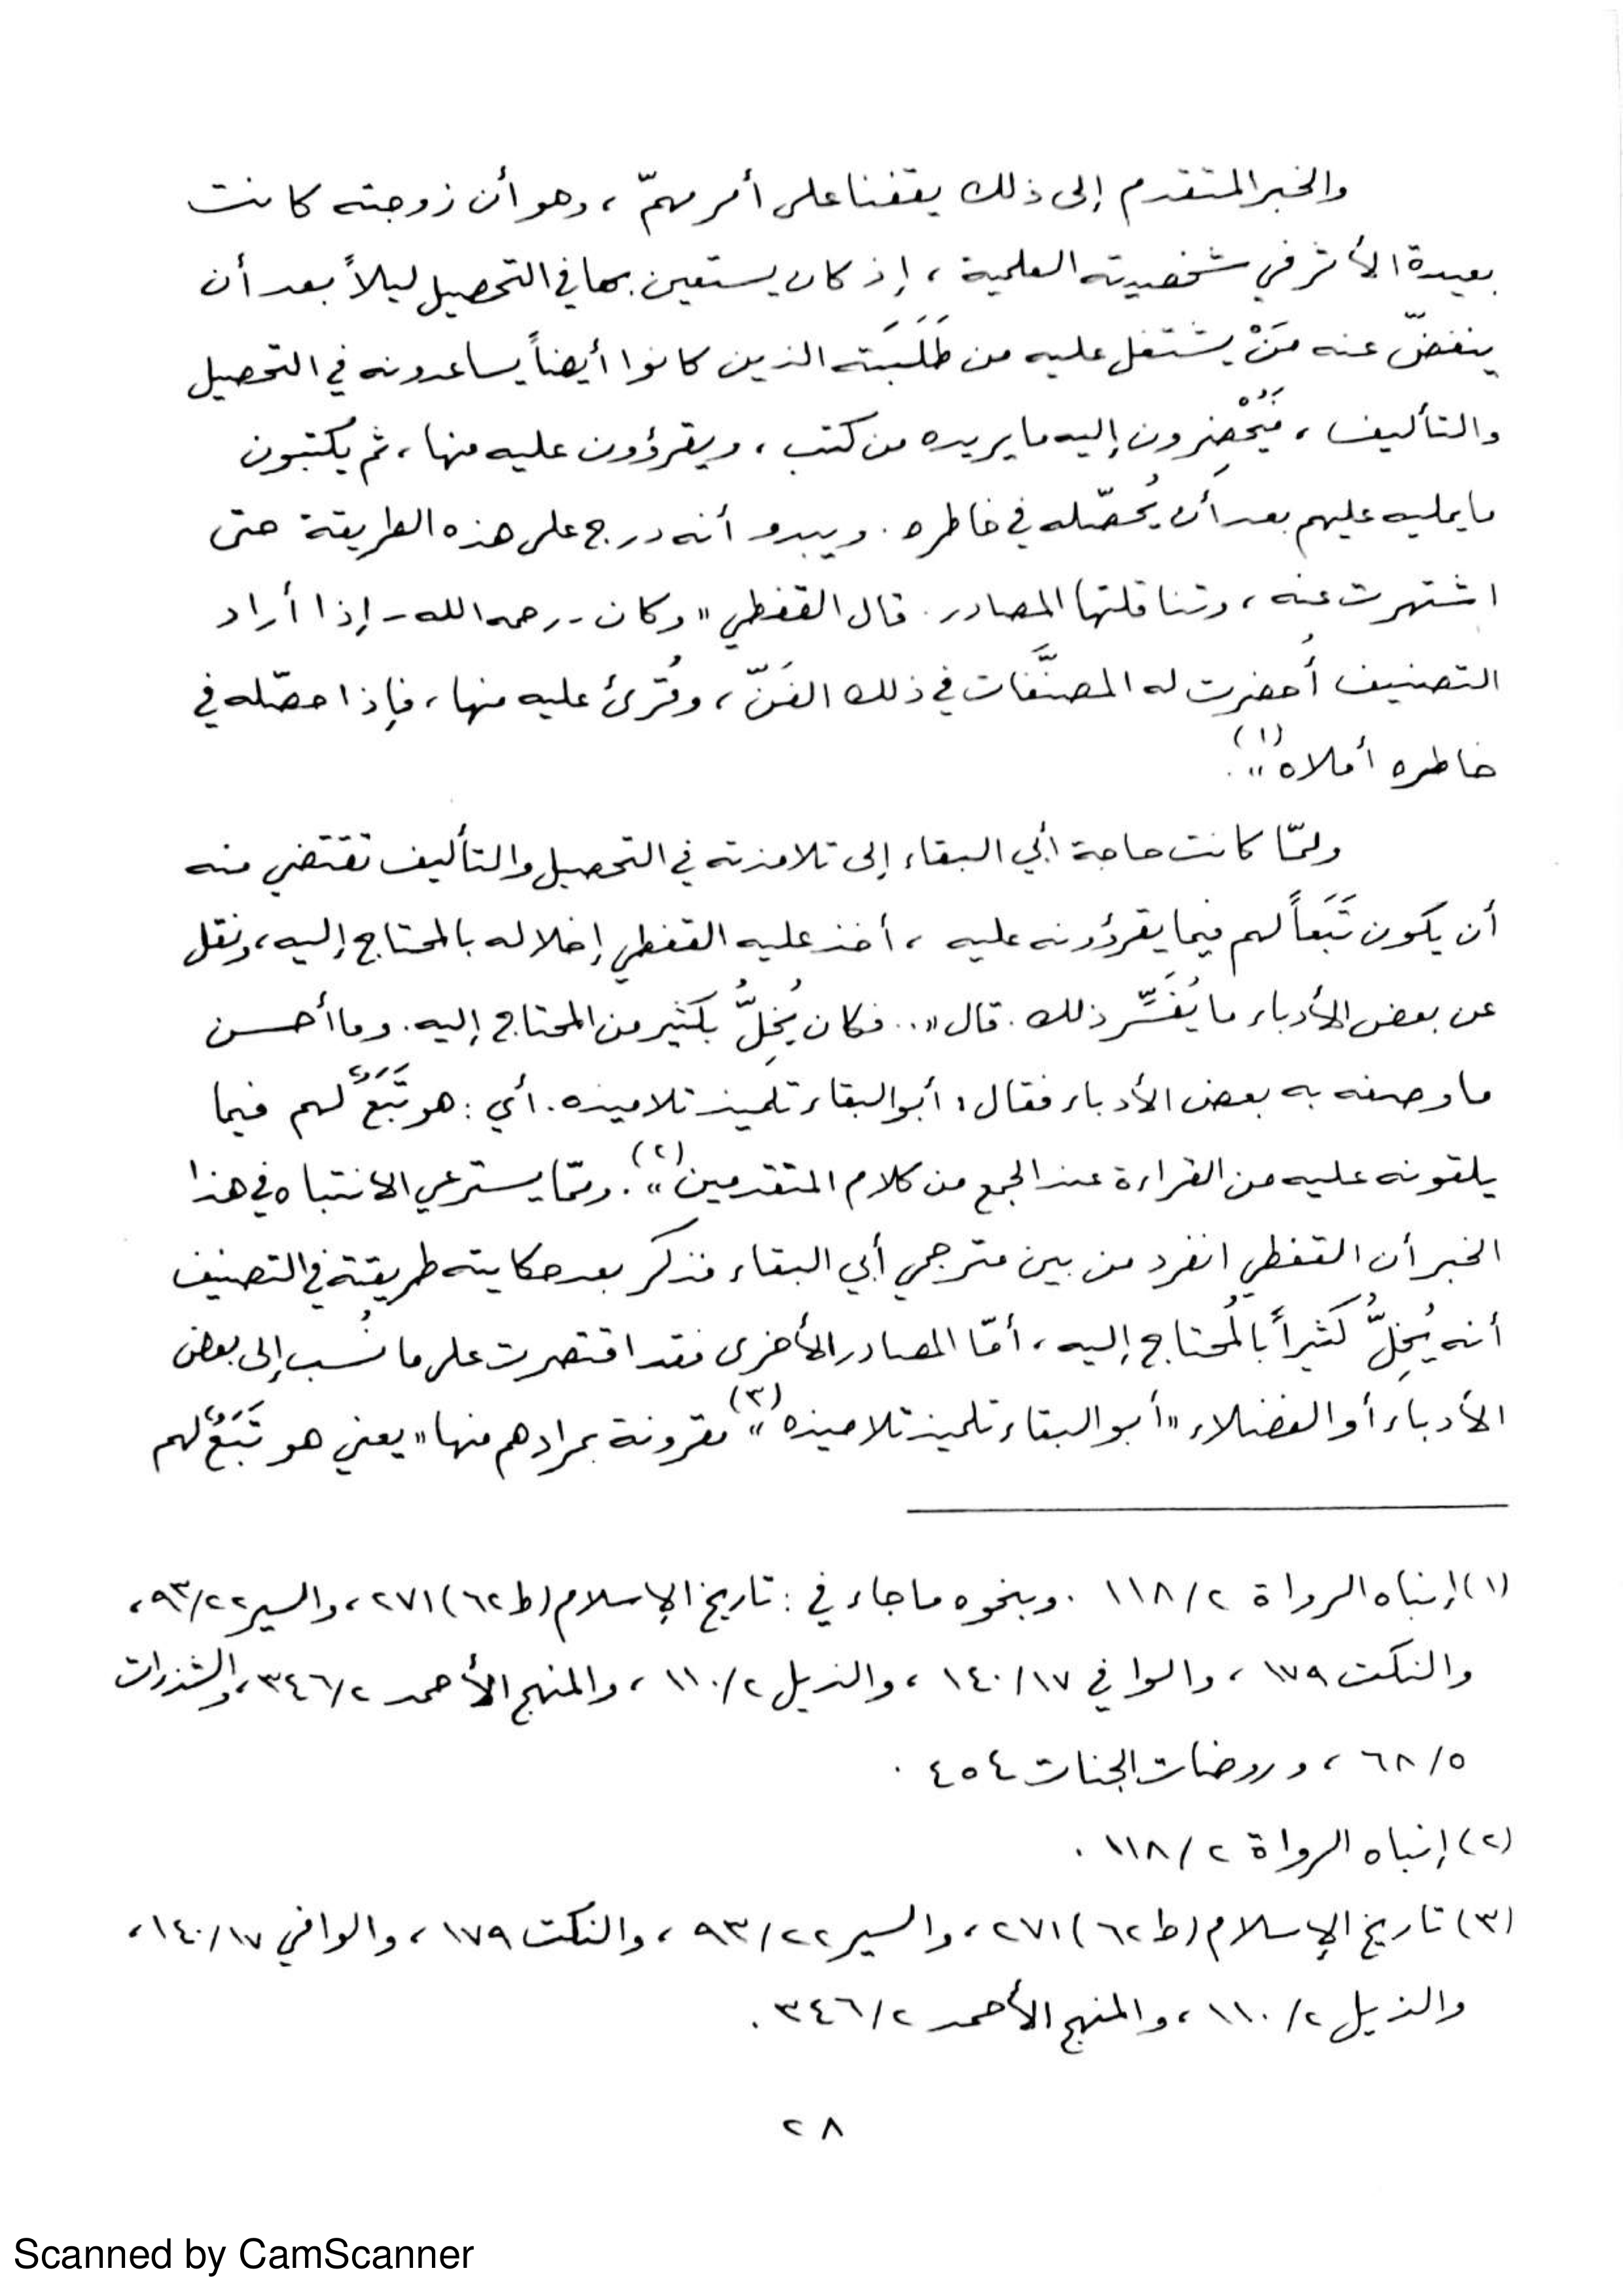 والخبر المتقدم إلى ذلك يقفنا على أمر مهمّ ، وهو أن زوجته كانت
بعيدة الأثر في شخصيته العلمية ، إذ كان يستعين بها في التحصيل ليلاً بعد أن
ينفضّ عنه مَنْ يشتغل عليه من طَلَبَته الذين كانوا أيضاً يساعدونه في التحصيل
والتأليف ، فيُحْضِرون إليه ما يريده من كتب ، ويقرؤون عليه منها ، ثم يكتبون
ما يمليه عليهم بعد أن يُحصّله في خاطره . ويبدو أنه درج على هذه الطريقة حتى
اشتهرت عنه ، وتناقلتها المصادر . قال القفطي " وكان - رحمه الله - إذا أراد
التصنيف أُحضرت له المصنَّفات في ذلك الفَنّ ، وقُرئ عليه منها ، فإذا حصّله في
خاطره أملاه "(١) .
ولمّا كانت حاجة أبي البقاء إلى تلامذته في التحصيل والتأليف تقتضي منه
أن يكون تَبَعاً لهم فيما يقرؤونه عليه ، أخذ عليه القفطي إخلاله بالمحتاج إليه ، ونقل
عن بعض الأدباء ما يُفَسِّر ذلك . قال " .. فكان يُخِلُّ بكثير من المحتاج إليه . وما أحسن
ما وصفه به بعض الأدباء فقال : أبو البقاء تلميذ تلاميذه . أي : هو تَبَعٌ لهم فيما
يلقونه عليه من القراءة عند الجمع من كلام المتقدمين "(٢) . وممّا يسترعي الانتباه في هذا
الخبر أن القفطي انفرد من بين مترجمي أبي البقاء فذكر بعد حكايته طريقته في التصنيف
أنه يُخِلُّ كثيراً بالمُحتاج إليه ، أمّا المصادر الأخرى فقد اقتصرت على ما نُسب إلى بعض
الأدباء أو الفضلاء " أبو البقاء تلميذ تلاميذه "(٣) مقرونة بمرادهم منها " يعني هو تَبَعٌ لهم
(١) إنباه الرواة ٢/ ١١٨ . وبنحوه ما جاء في : تاريخ الإسلام (ط ٦٢) ٢٧١ ، والسير ٢٢/ ٩٣ ،
والنكت ١٧٩ ، والوافي ١٧/ ١٤٠ ، والذيل ٢/ ١١٠ ، والمنهج الأحمد ٢/ ٣٤٦ ، والشذرات
٥/ ٦٨ ، وروضات الجنات ٤٥٤ .
(٢) إنباه الرواة ٢/ ١١٨ .
(٣) تاريخ الإسلام (ط ٦٢) ٢٧١ ، والسير ٢٢/ ٩٣ ، والنكت ١٧٩ ، والوافي ١٧/ ١٤٠ ،
والذيل ٢/ ١١٠ ، والمنهج الأحمد ٢/ ٣٤٦ .
٢٨
Scanned by CamScanner